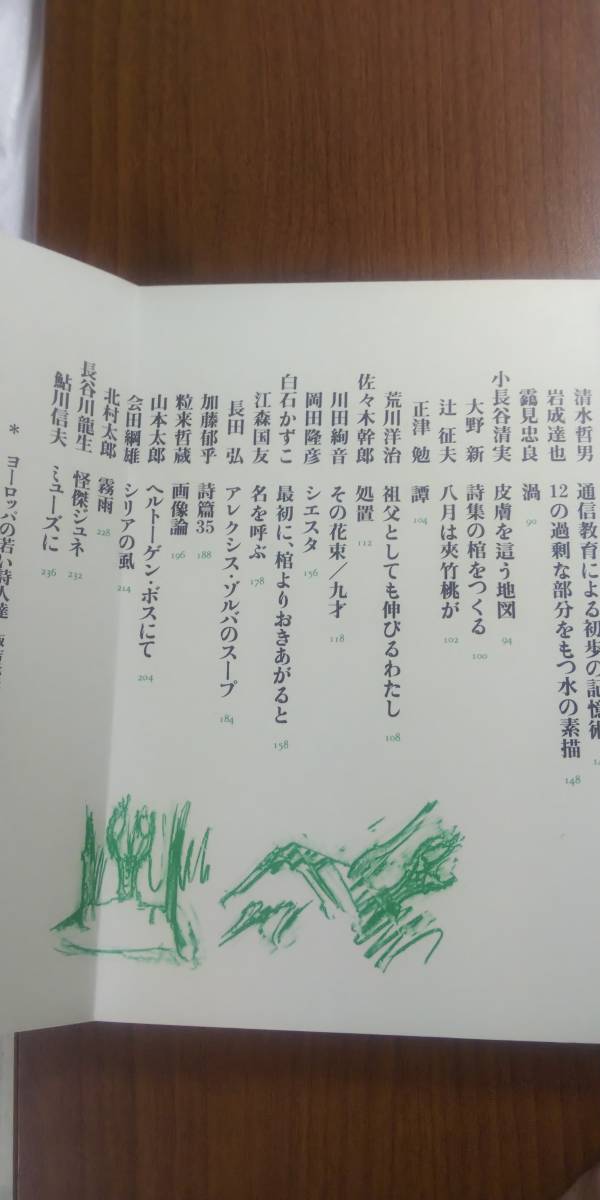 清水哲男 通信教育による初歩の記憶術
岩成達也 12の過剰な部分をもつ水の素描 148
鶴見忠良 渦 90
小長谷清実 皮膚を這う地図 94
大野 新 詩集の棺をつくる 100
辻 征夫 八月は夾竹桃が 102
正津 勉 譚 104
荒川洋治 祖父としても伸びるわたし 108
佐々木幹郎 処置 112
川田絢音 その花束／九才 118
岡田隆彦 シエスタ 156
白石かずこ 最初に、棺よりおきあがると 158
江森国友 名を呼ぶ 178
長田 弘 アレクシス・ゾルバのスープ 184
加藤郁乎 詩篇35 188
粒来哲蔵 画像論 196
山本太郎 ヘルトーゲン・ボスにて 204
会田綱雄 シリアの虱 214
北村太郎 霧雨 228
長谷川龍生 怪傑ジュネ 232
鮎川信夫 ミューズに 236
＊ ヨーロッパの若い詩人達